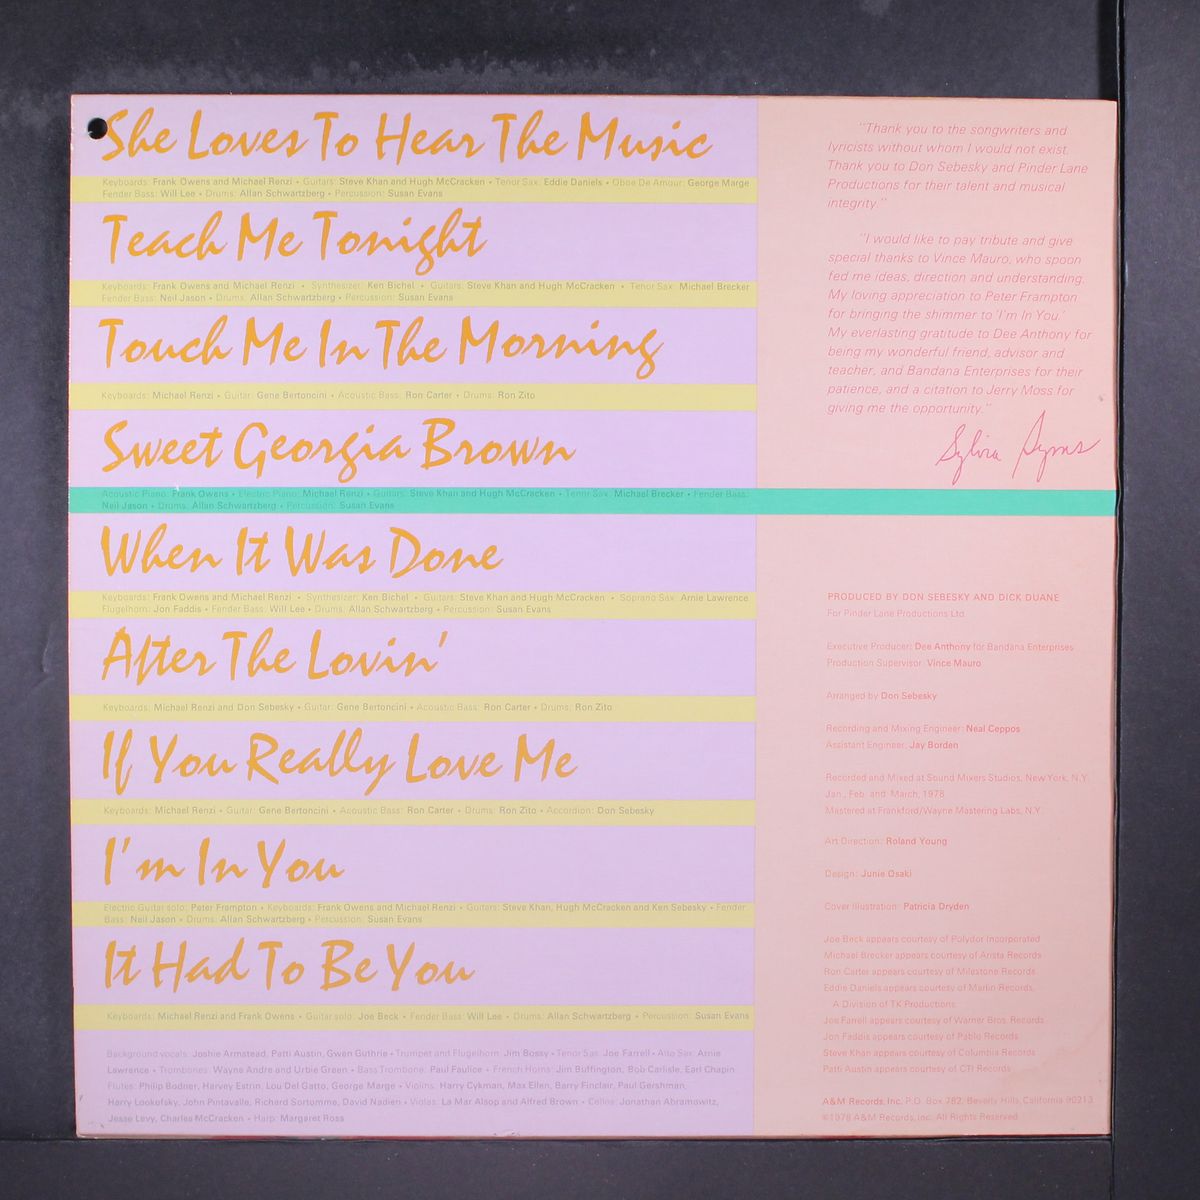 She Loves To Hear The Music
Keyboards: Frank Owens and Michael Renzi • Guitars: Steve Khan and Hugh McCracken • Tenor Sax: Eddie Daniels • Oboe De Amour: George Marge
Fender Bass: Will Lee • Drums: Allan Schwartzberg • Percussion: Susan Evans
Teach Me Tonight
Keyboards: Frank Owens and Michael Renzi • Synthesizer: Ken Bichel • Guitars: Steve Khan and Hugh McCracken • Tenor Sax: Michael Brecker
Fender Bass: Neil Jason • Drums: Allan Schwartzberg • Percussion: Susan Evans
Touch Me In The Morning
Keyboards: Michael Renzi • Guitar: Gene Bertoncini • Acoustic Bass: Ron Carter • Drums: Ron Zito
Sweet Georgia Brown
Acoustic Piano: Frank Owens • Electric Piano: Michael Renzi • Guitars: Steve Khan and Hugh McCracken • Tenor Sax: Michael Brecker • Fender Bass:
Neil Jason • Drums: Allan Schwartzberg • Percussion: Susan Evans
When It Was Done
Keyboards: Frank Owens and Michael Renzi • Synthesizer: Ken Bichel • Guitars: Steve Khan and Hugh McCracken • Soprano Sax: Arnie Lawrence
Flugelhorn: Jon Faddis • Fender Bass: Will Lee • Drums: Allan Schwartzberg • Percussion: Susan Evans
After The Lovin'
Keyboards: Michael Renzi and Don Sebesky • Guitar: Gene Bertoncini • Acoustic Bass: Ron Carter • Drums: Ron Zito
If You Really Love Me
Keyboards: Michael Renzi • Guitar: Gene Bertoncini • Acoustic Bass: Ron Carter • Drums: Ron Zito • Accordion: Don Sebesky
I'm In You
Electric Guitar solo: Peter Frampton • Keyboards: Frank Owens and Michael Renzi • Guitars: Steve Khan, Hugh McCracken and Ken Sebesky • Fender
Bass: Neil Jason • Drums: Allan Schwartzberg • Percussion: Susan Evans
It Had To Be You
Keyboards: Michael Renzi and Frank Owens • Guitar solo: Joe Beck • Fender Bass: Will Lee • Drums: Allan Schwartzberg • Percussion: Susan Evans
Background vocals: Joshie Armstead, Patti Austin, Gwen Guthrie • Trumpet and Flugelhorn: Jim Bossy • Tenor Sax: Joe Farrell • Alto Sax: Arnie
Lawrence • Trombones: Wayne Andre and Urbie Green • Bass Trombone: Paul Faulice • French Horns: Jim Buffington, Bob Carlisle, Earl Chapin
Flutes: Philip Bodner, Harvey Estrin, Lou Del Gatto, George Marge • Violins: Harry Cykman, Max Ellen, Barry Finclair, Paul Gershman,
Harry Lookofsky, John Pintavalle, Richard Sortomme, David Nadien • Violas: La Mar Alsop and Alfred Brown • Cellos: Jonathan Abramowitz,
Jesse Levy, Charles McCracken • Harp: Margaret Ross
"Thank you to the songwriters and
lyricists without whom I would not exist.
Thank you to Don Sebesky and Pinder Lane
Productions for their talent and musical
integrity."
"I would like to pay tribute and give
special thanks to Vince Mauro, who spoon
fed me ideas, direction and understanding.
My loving appreciation to Peter Frampton
for bringing the shimmer to 'I'm In You.'
My everlasting gratitude to Dee Anthony for
being my wonderful friend, advisor and
teacher, and Bandana Enterprises for their
patience, and a citation to Jerry Moss for
giving me the opportunity."
Sylvia Syms
PRODUCED BY DON SEBESKY AND DICK DUANE
For Pinder Lane Productions Ltd.
Executive Producer: Dee Anthony for Bandana Enterprises
Production Supervisor: Vince Mauro
Arranged by Don Sebesky
Recording and Mixing Engineer: Neal Ceppos
Assistant Engineer: Jay Borden
Recorded and Mixed at Sound Mixers Studios, New York, N.Y.
Jan., Feb. and March, 1978
Mastered at Frankford/Wayne Mastering Labs, N.Y.
Art Direction: Roland Young
Design: Junie Osaki
Cover Illustration: Patricia Dryden
Joe Beck appears courtesy of Polydor Incorporated
Michael Brecker appears courtesy of Arista Records
Ron Carter appears courtesy of Milestone Records
Eddie Daniels appears courtesy of Marlin Records,
A Division of TK Productions
Joe Farrell appears courtesy of Warner Bros. Records
Jon Faddis appears courtesy of Pablo Records
Steve Khan appears courtesy of Columbia Records
Patti Austin appears courtesy of CTI Records
A&M Records, Inc. P.O. Box 782, Beverly Hills, California 90213
©1978 A&M Records, Inc. All Rights Reserved